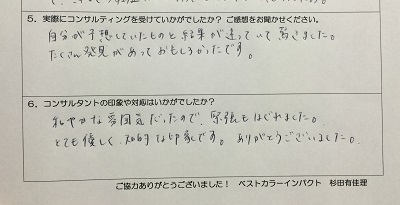 5．実際にコンサルティングを受けていかがでしたか？ ご感想をお聞かせください。
自分が予想していたものと結果が違っていて驚きました。
たくさん発見があっておもしろかったです。
6．コンサルタントの印象や対応はいかがでしたか？
和やかな雰囲気だったので、緊張もほぐれました。
とても優しく、知的な印象です。ありがとうございました。
ご協力ありがとうございました！ ベストカラーインパクト 杉田有佳理